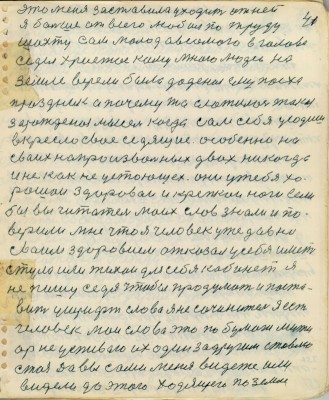 это меня заставило уходить от ней
я больше от всего любил по труду
шахту Сам молод а всего много в голове
седел Христос кому много людей на
земле верели было дадено ему паска
праздник а почему то сложилося такое
зарождения мысел когда сам себя усодил
в кресло свое седящие. особенно на
своих напроизвольных двох никогда
и не как не устоющех. они у тебя хо-
рошои здоровои и крепкои ноги Если
бы вы читатель моих слов знали и по-
верели мне что я человек уже давно
своим здоровием отказал у себя иметь
стула или тихои для себя кабинет я
не пишу седя чтобы продумать и поста-
вить у порядок слова я не сочинитель я есть
человек мои слова это по бумаги
ор не успеваю их один за другим ставлю
стоя Да вы сами меня видете или
видели до этого ходящего по земли